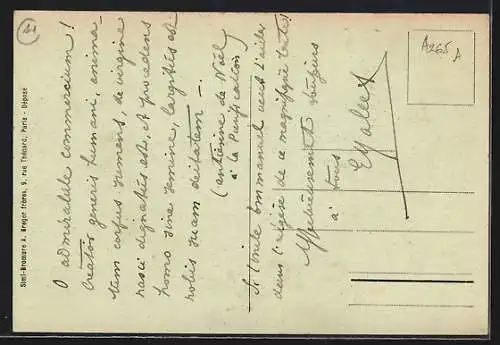 21
Simi-Bromure A. Breger frères, 9, rue Thénard, Paris - Déposé
O admirabile commercium !
Creator generis humani, anima-
tum corpus sumens, de virgine
nasci dignatus est, et procedens
homo sine semine, largitus est
nobis suam deitatem —.
(antienne de Noël
à la Purification)
Si l'oncle Emmanuel veut l'aider
dans l'analyse de ce magnifique texte !
Affectueusement toujours
à tous
A265
A